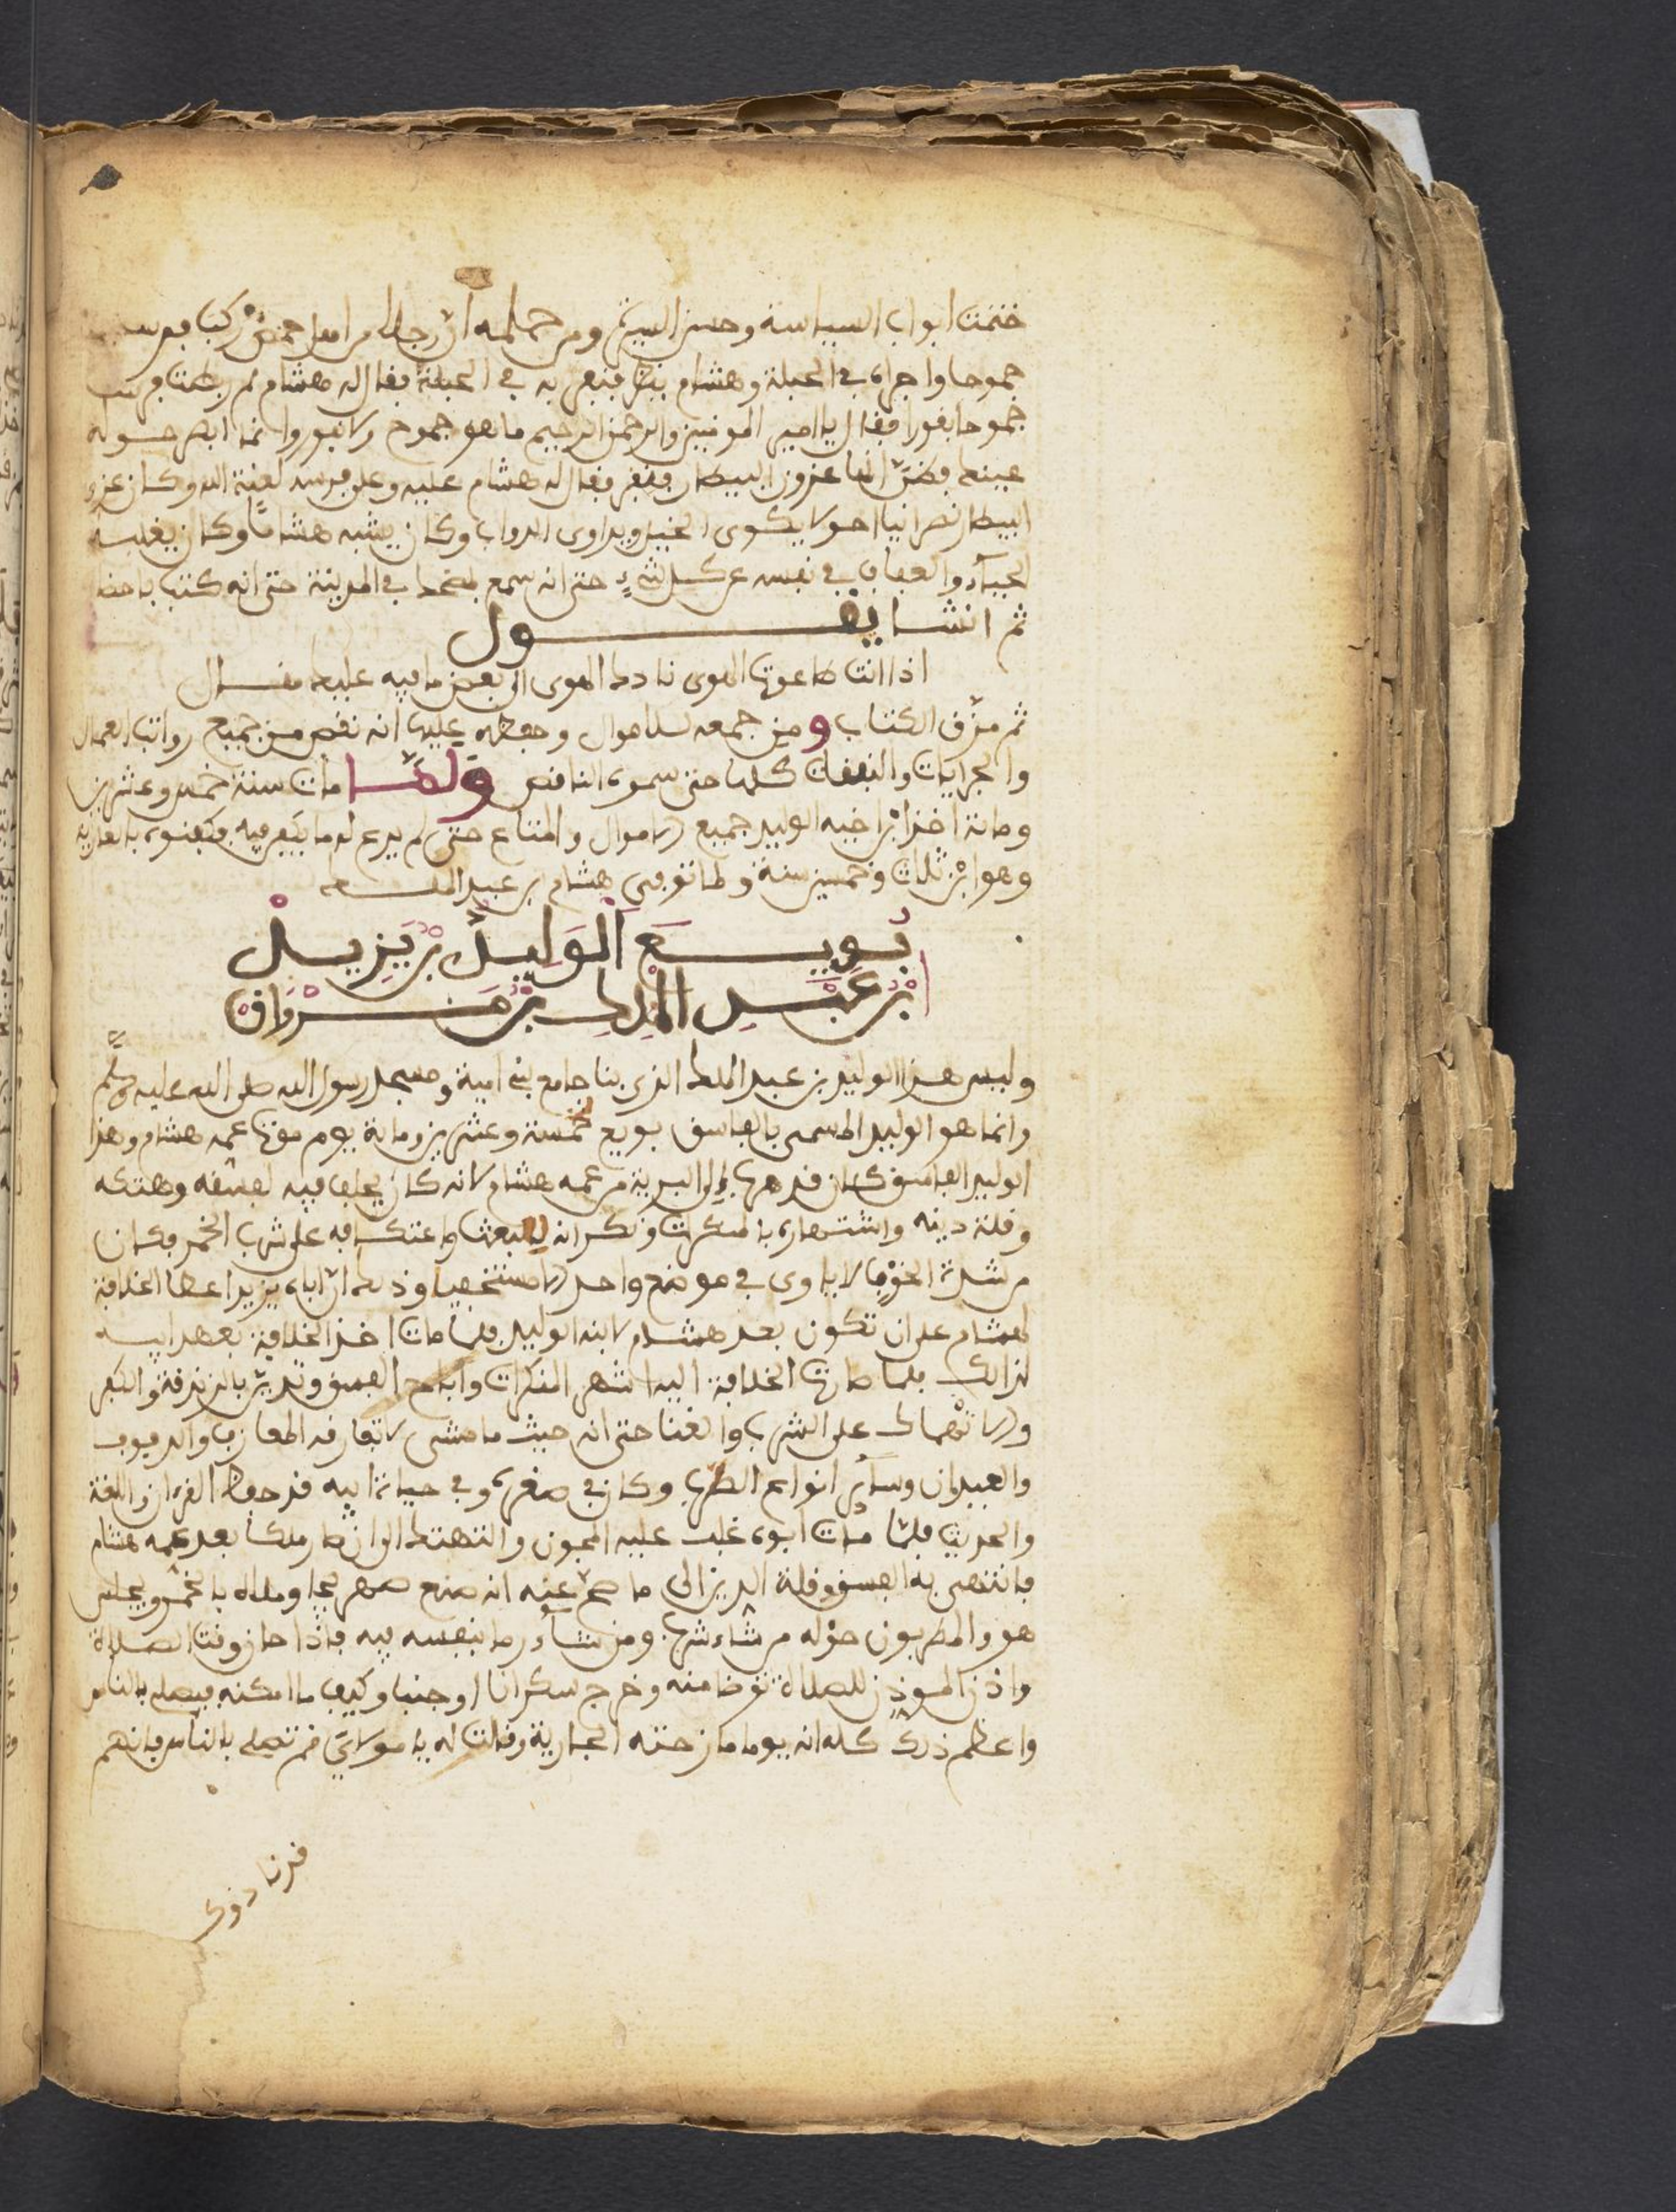 ختمت ابواب السياسة وحسن السيرة ومن حلمه ان رجلا من اهل حمص ركب فرسا
جموحا واجراه في الحلبة وهشام ينظر فنفر به في الحلبة فقال له هشام لم ربطت فرسا
جموحا نفورا فقال يا امير المومنين والرحمن الرحيم ما هو جموح ولا نفور وانما ابصر حولة
عينك فظن انها عزون البيطار فنفر فقال له هشام عليه وعلى فرسه لعنة الله وكان عزون
البيطار نصرانيا احول يكوي الخيل ويداوي الدواب وكان يشبه هشاما وكان يغلبه
الحياء والعفاف في نفسه عن كل شيء حتى انه سمع في المدينة حتى انه كتب
ثم انشا يقول
اذا انت طاوعت الهوى قادك الهوى الى بعض ما فيه عليك مقال
ثم مزق الكتاب ومن جمعه للاموال وحفظه عليها انه نقص من جميع رواتب العمال
والجرايات والنفقات كلها حتى سموه الناقص ولما مات سنة خمس وعشرين
ومائة اخذ ابن اخيه الوليد جميع الاموال والمتاع حتى لم يدع له ما يقبر فيه فكفنوه بالعارية
وهو ابن ثلاث وخمسين سنة ولما توفي هشام بن عبد الملك
بويع الوليد بن يزيد
بن عبد الملك بن مروان
وليس هذا الوليد بن عبد الملك الذي بنا جامع بني امية ومسجد رسول الله صلى الله عليه وسلم
وانما هو الوليد المسمى بالفاسق بويع خمسة وعشرين وماية يوم موت عمه هشام وهذا
الوليد الفاسق كان قد هرب الى البرية من عمه هشام لانه كان يخاف فيه لفسقه وهتكه
وقلة دينه واشتهاره بالمنكرات ونكرانه للبعث واعتكافه على شرب الخمر فكان
من شدة الخوف لا ياوي في موضع واحد الا مستخفيا وذلك ان اباه يزيد اعطا الخلافة
لهشام على ان تكون بعد هشام لابنه الوليد فلما مات اخذ الخلافة بعهد ابيه
لذالك فلما صارت الخلافة اليه اشهر المنكرات واباح الفسق وتدين بالزندقة والكفر
والانهماك على الشرب والغنا حتى انه حيث ما مشى لا تفارقه المعازف والدفوف
والعيدان وساير انواع الطرب وكان في صغره وفي حياة ابيه قد حفظ القرءان واللغة
والحديث فلما مات ابوه غلب عليه المجون والتهتك الى ان صار ملكا بعد عمه هشام
فانتهى به الفسق وقلة الدين الى ما صح عنه انه صنع صهريجا وملاه بالخمر ويجلس
هو والمطربون حوله من شاء شرب ومن شاء رما بنفسه فيه فاذا حان وقت الصلاة
واذن الموذن للصلاة توضا منه وخرج سكرانا او جنبا وكيف ما امكنه فيصلي بالناس
واعظم ذلك كله انه يوما مازحته الجارية وقالت له يا مولاي قم تصلي بالناس فانهم